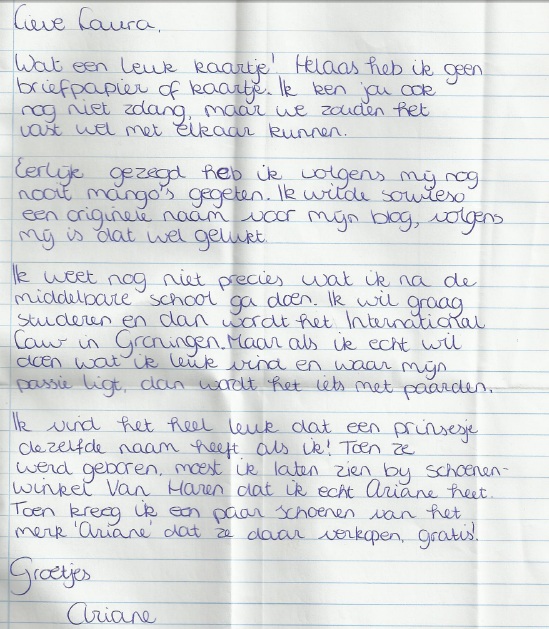 Lieve Laura,
Wat een leuk kaartje! Helaas heb ik geen
briefpapier of kaartje. Ik ken jou ook
nog niet zdang, maar we zouden het
vast wel met elkaar kunnen.
Eerlijk gezegd heb ik volgens mij nog
nooit mango's gegeten. Ik wilde sowieso
een originele naam voor mijn blog, volgens
mij is dat wel gelukt.
Ik weet nog niet precies wat ik na de
middelbare school ga doen. Ik wil graag
studeren en dan wordt het International
Law in Groningen. Maar als ik echt wil
doen wat ik leuk vind en waar mijn
passie ligt, dan wordt het iets met paarden.
Ik vind het heel leuk dat een prinsesje
dezelfde naam heeft als ik! Toen ze
werd geboren, moest ik laten zien by schoenen-
winkel Van Haren dat ik echt Ariane heet.
Toen kreeg ik een paar schoenen van het
merk 'Ariane' dat ze daar verkopen, gratis!
Groetjes
Ariane